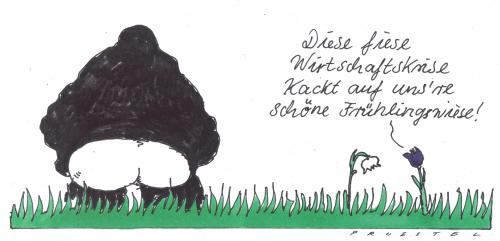 Diese fiese
Wirtschaftskrise
Kackt auf uns're
schöne Frühlingswiese!
PRUESTEL